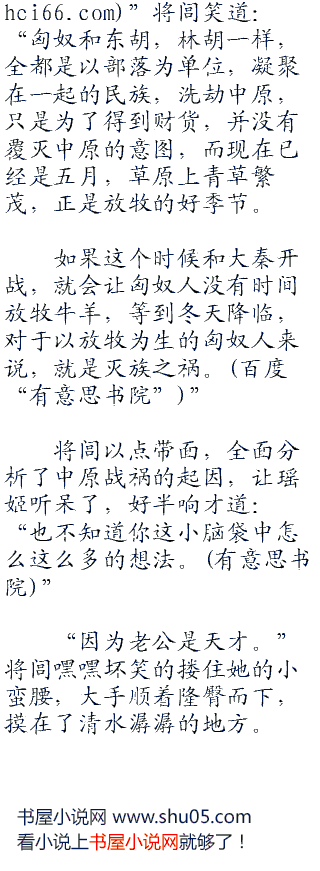 hci66.com)”将闾笑道：
“匈奴和东胡，林胡一样，
全都是以部落为单位，凝聚
在一起的民族，洗劫中原，
只是为了得到财货，并没有
覆灭中原的意图，而现在已
经是五月，草原上青草繁
茂，正是放牧的好季节。
如果这个时候和大秦开
战，就会让匈奴人没有时间
放牧牛羊，等到冬天降临，
对于以放牧为生的匈奴人来
说，就是灭族之祸。(百度
“有意思书院”)”
将闾以点带面，全面分
析了中原战祸的起因，让瑶
姬听呆了，好半响才道：
“也不知道你这小脑袋中怎
么这么多的想法。(有意思书
院)”
“因为老公是天才。”
将闾嘿嘿坏笑的搂住她的小
蛮腰，大手顺着隆臀而下，
摸在了清水潺潺的地方。
书屋小说网 www.shu05.com
看小说上书屋小说网就够了！